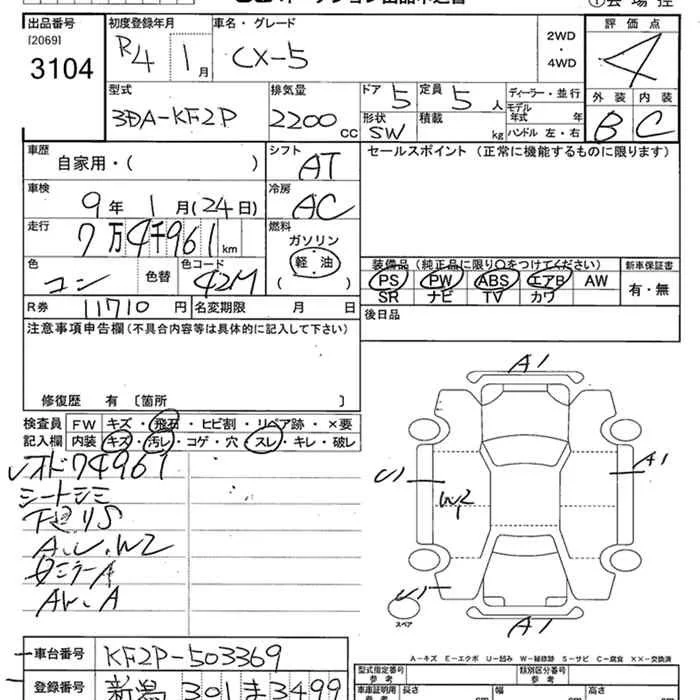 出品番号 初度登録年月 車名・グレード 評価点
[2069] R4 1月 CX-5 2WD・4WD 4
3104
型式 排気量 ドア 定員 ディーラー・並行 外装 内装
3DA-KF2P 2200cc 5 5人 モデル年式 年 B C
形状 SW 積載 kg ハンドル 左・右
車歴 シフト セールスポイント (正常に機能するものに限ります)
自家用・( ) AT
車検 冷房
9年 1月(24日) AC
走行 燃料
7万4千961km ガソリン
軽油
( )
色 色替 色コード 装備品(純正品に限り○をつけてください) 新車保証書
コン 42M PS PW ABS エアB AW 有・無
SR ナビ TV カワ
R券 11710円 名変期限 月 日 後日品
注意事項申告欄(不具合内容等は具体的に記入して下さい)
修復歴 有 〔箇所
検査員 FW キズ・飛石・ヒビ割・リペア跡・×要
記入欄 内装 キズ・汚レ・コゲ・穴・スレ・キレ・破レ
A1
レオドク4961
シートシミ
下廻りS
A.U.W2
A1
U1
W2
1
U1
スペア
A1
A-キズ E-エクボ U-凹み W-補修跡 S-サビ C-腐食 ××-交換済
車台番号 KF2P-503369 型式指定番号 参考 類別区分番号 参考
登録番号 新潟 301 ま3499 車庫証明用 参考 長さ cm 幅 cm 高さ cm